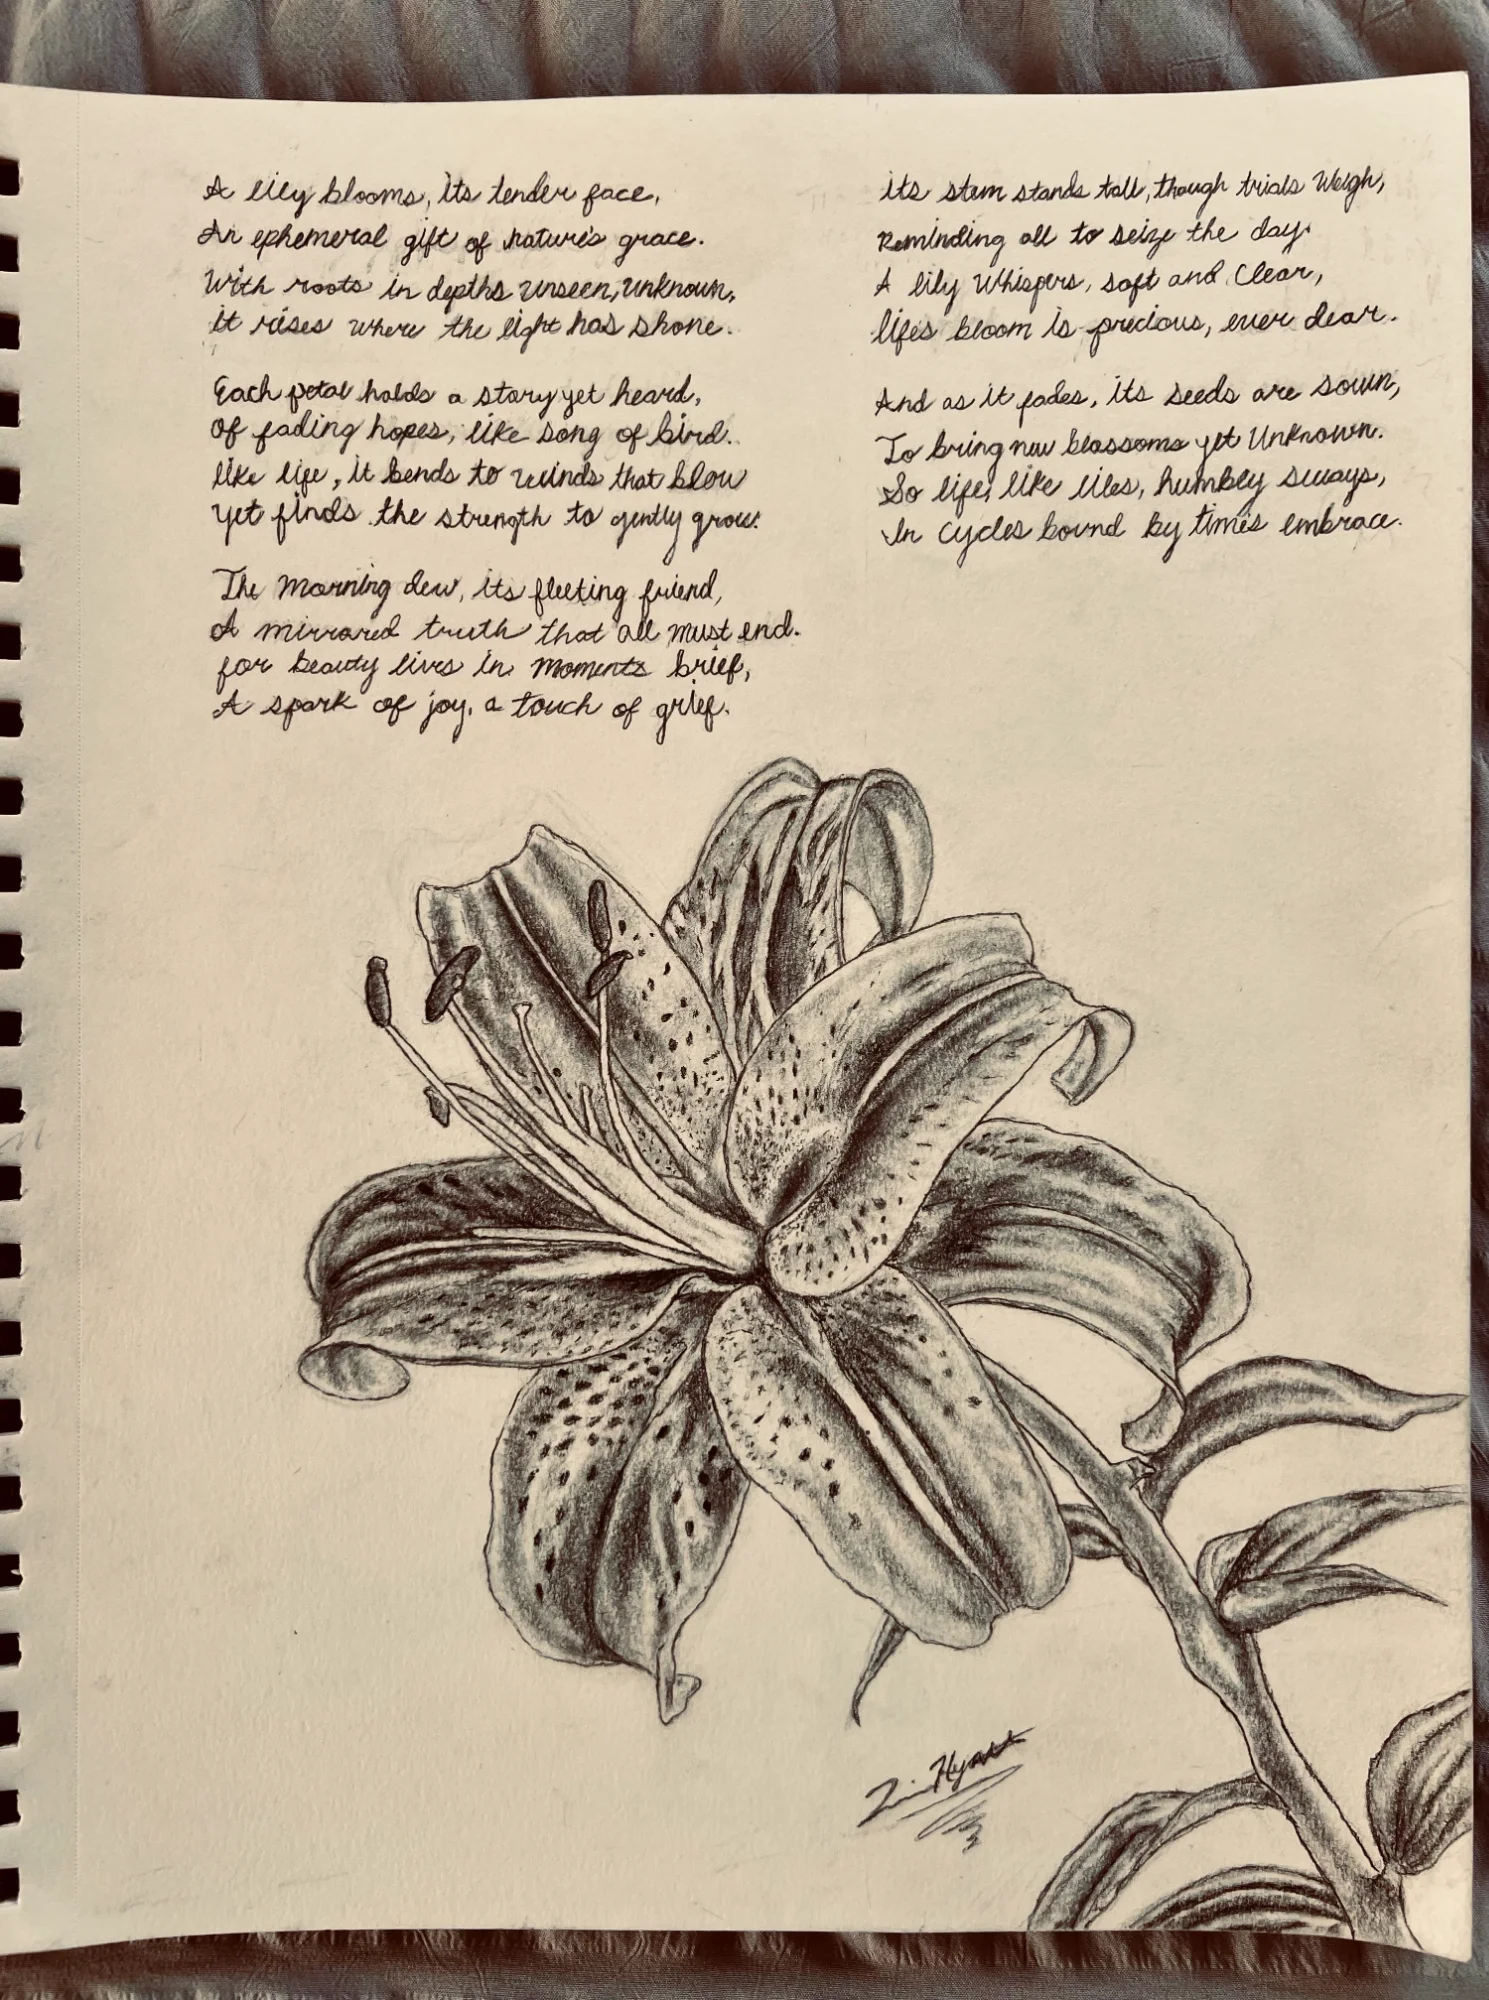 A lily blooms, its tender face,
An ephemeral gift of nature's grace.
With roots in depths unseen, unknown,
it rises where the light has shone.
Each petal holds a story yet heard,
Of fading hopes, like song of bird.
like life, it bends to winds that blow
yet finds the strength to gently grow.
The morning dew, its fleeting friend,
A mirrored truth that all must end.
for beauty lives in moments brief,
A spark of joy, a touch of grief.
its stem stands tall, though trials weigh,
Reminding all to seize the day.
A lily whispers, soft and clear,
life's bloom is precious, ever dear.
And as it fades, its seeds are sown,
To bring new blossoms yet unknown.
So life, like lilies, humbly sways,
In cycles bound by time's embrace.